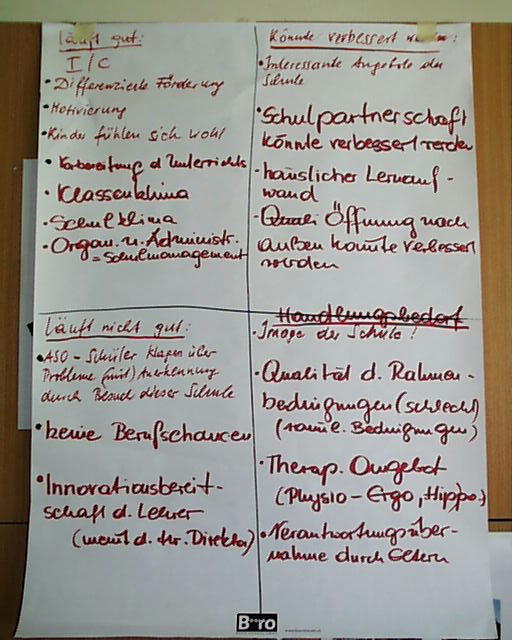 läuft gut:
I/C
• Differenzierte Förderung
• Motivierung
• Kinder fühlen sich wohl
• Vorbereitung d Unterrichts
• Klassenklima
• Schulklima
• Organ. u. Administr.
= Schulmanagement
Könnte verbessert werden:
• Interessante Angebote der
Schule
• Schulpartnerschaft
könnte verbessert werden
• häuslicher Lernauf-
wand
• Öffnung nach
außen könnte verbessert
werden
läuft nicht gut:
• ASO-Schüler klagen über
Probleme (mit) Anerkennung
durch Besuch dieser Schule
• keine Berufschancen
• Innovationsbereit-
schaft d. Lehrer
(meint d. Hr. Direktor)
Handlungsbedarf
• Image der Schule!
• Qualität d. Rahmen-
bedingungen (schlecht)
(räuml. Bedingungen)
• Therap. Angebot
(Physio-Ergo, Hippo.)
• Verantwortungsüber-
nahme durch Eltern